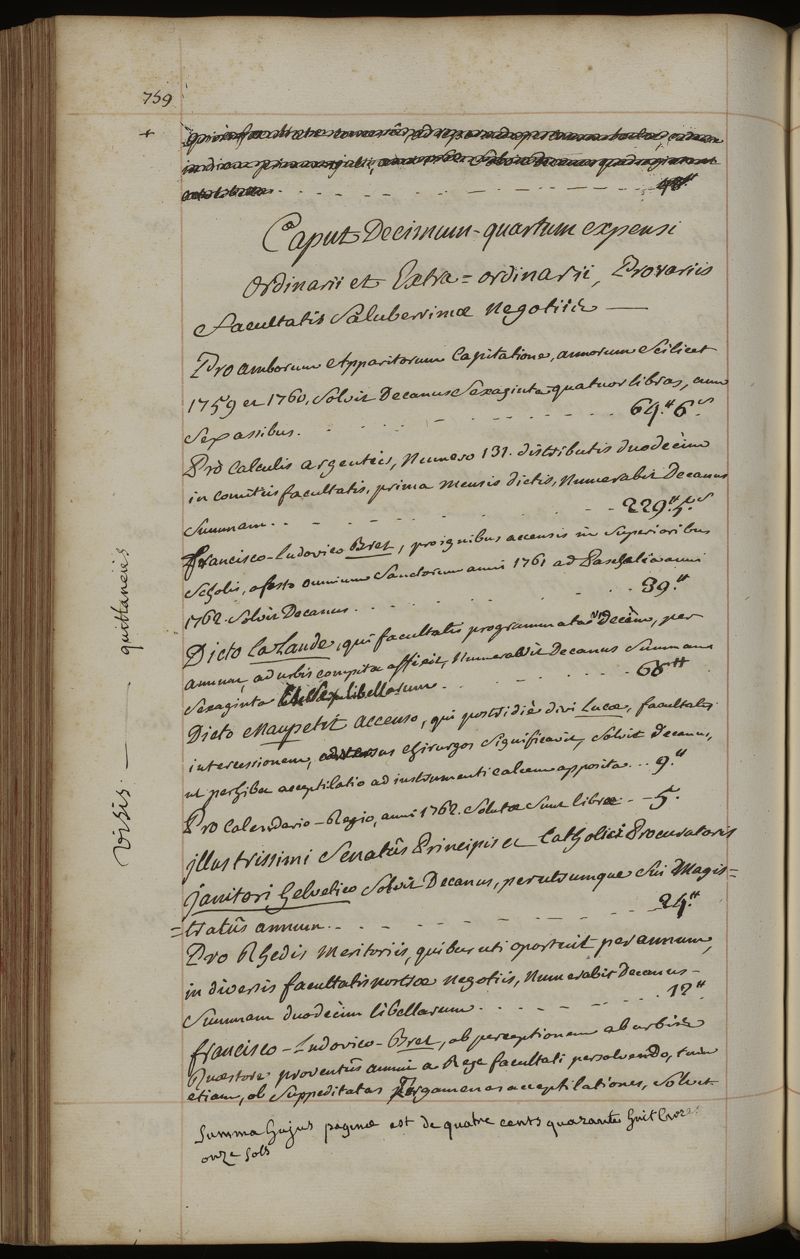 759
+
48.tt
Caput Decimum-quartum expensi
ordinarii et Extra=ordinarii, Pro variis
Facultatis Saluberrimæ Negotiis —
Pro amborum Apparitorum Capitatione, annorum Scilicet
1759 et 1760, Solvit Decanus Sexaginta-quatuor libras, cum
Sex assibus. . . . . . . . . . 64.tt 6.s
Pro Calculis argenteis, Numero 131. distributis duodecim
in comitiis facultatis, prima mensis dictis, Numerabit Decanus
Summam . . . . . . . . . . 229.tt 5.s
Francisco-Ludovico Bret, pro ignibus accensis in Superioribus
Scholis, a festo omnium Sanctorum anni 1761 ad Paschalia anni
1762. Solvit Decanus . . . . . . . . 39.tt
Dicto La Lande, qui facultatis programmata Decem, per
annum, ad urbis compita affixit, Numerabit Decanus Summam
Sexaginta et Sex libellarum . . . . . . 66tt
Dicto Maupetit accenso, qui postridie divi Lucæ, facultatis
intercessionem, adversus chirurgos Significavit, Solvit Decanus,
ut perhibet acceptilatio ad instrumenti calcem apposita . . . 9.tt
Pro Calendario-Regio, anni 1762. Solutæ Sunt libræ - - 5.
illustrissimi Senatûs Principis et Catholici Procuratoris
janitori helvetico Solvit Decanus, per utrumque Sui Magis=
=tratûs annum . . . . . . . . . 24.tt
Pro Rhedis Meritoriis, quibus uti oportuit per annum,
in diversis facultatis nostræ negotiis, Numerabit Decanus -
Summam duodecim libellarum . . . . . . 12.tt
Francisco-Ludovico-Bret, ob perceptionem ab urbis
Quæstore proventûs annui a Rege facultati persolvendo, tum
etiam, ob Suppeditatas Pergamenas acceptilationes, Solvit
Summa hujus paginæ est de quatre cents quarante huit livres
onze sols
Visis — quittanciis